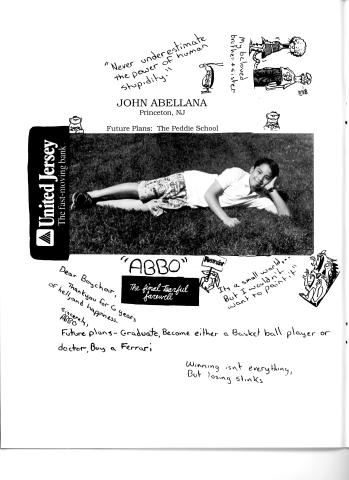 "Never underestimate
the power of human
stupidity."
My beloved
brother + sister
JOHN ABELLANA
Princeton, NJ
Future Plans: The Peddie School
United Jersey
The fast-moving bank
"ABBO"
The final Tearful
farewell
Dear Boychoir,
Thankyou for 6 years
of hell and happiness.
Sincerely,
ABBO
It's a small world...
But I wouldn't
want to paint it"
Future plans- Graduate, Become either a Basket ball player or
doctor, Buy a Ferrari
Winning isn't everything,
But losing stinks